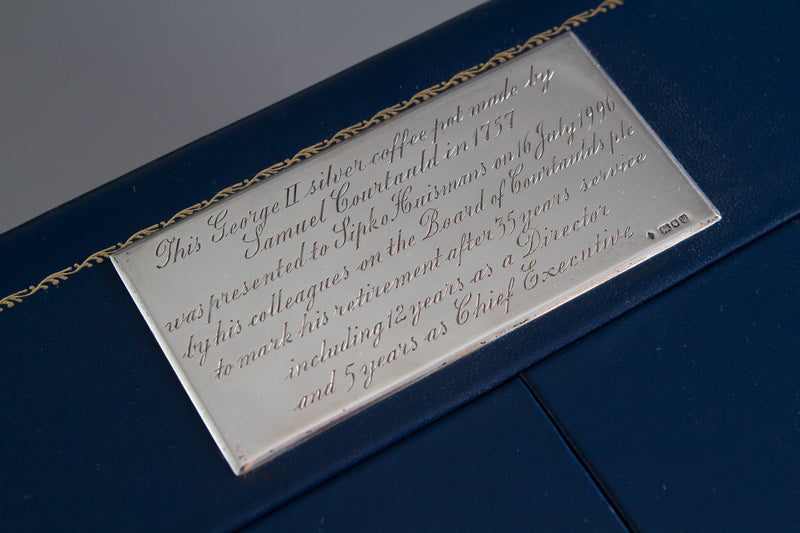 This George II silver coffee pot made by
Samuel Courtauld in 1757
was presented to Sipko Huismans on 16 July 1996
by his colleagues on the Board of Courtaulds plc
to mark his retirement after 35 years service
including 12 years as a Director
and 5 years as Chief Executive